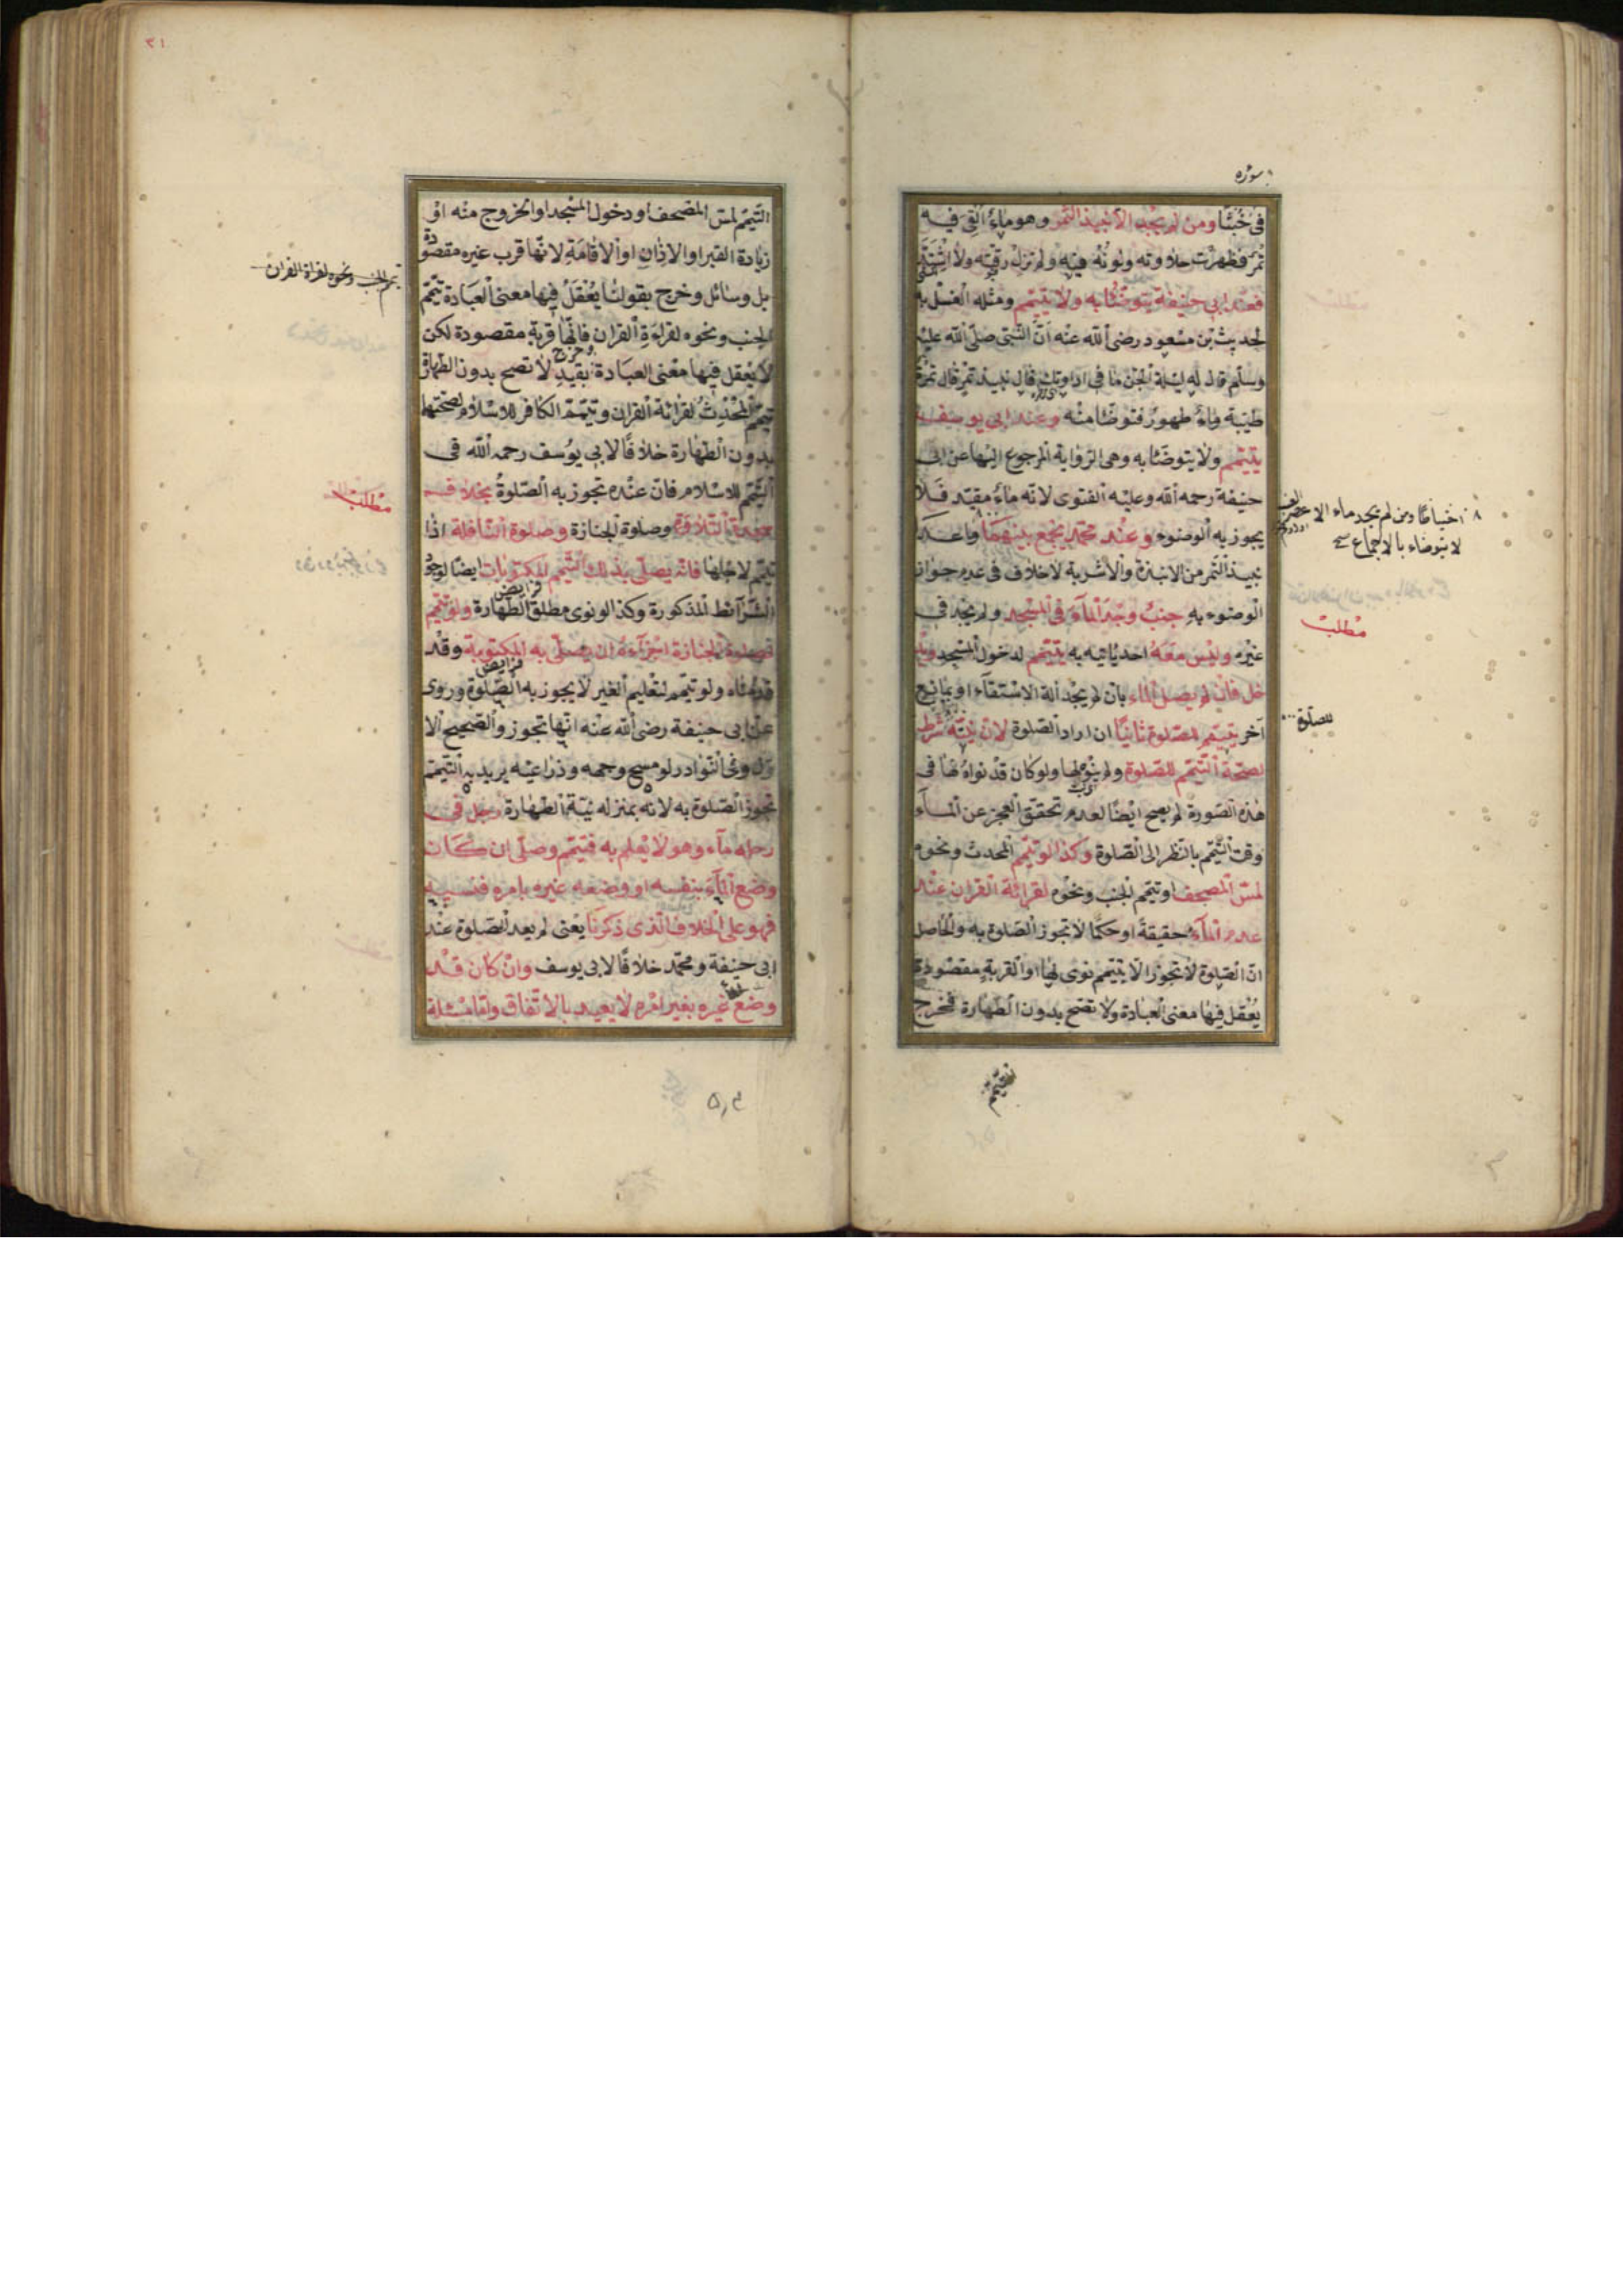 ؛ سؤره
في خُبثًا ومن لم يجد الا نبيذ التمر وهو ماءٌ القى فيه
تمر فظهرت حلاوته ولونه فيه ولم تزل رقته ولا اشتد
فعند ابي حنيفة يتوضّئا به ولا يتيمّم ومثله الغسل به
لحديث بن مسعود رضى الله عنه انّ النّبيّ صلّى الله عليه
وسلم قال له ليلة الجنّ ما في اداوتك قال نبيذ تمر قال تمرة
طيّبة وماءٌ طهورٌ فتوضّئا منه وعند ابي يوسف
يتيمّم ولا يتوضّئا به وهى الرّواية المرجوع اليها عن ابى
حنيفة رحمه الله وعليه الفتوى لانّه ماءٌ مقيّد فلا
يجوز به الوضوء وعند محمّد يجمع بينهما وما عدا
نبيذ التّمر من الانبذة والاشربة لا خلاف في عدم جواز
الوضوء به جنبٌ وجد الماء في المسجد ولم يجد في
غيره وليس معه احد ياتيه به يتيمّم لدخول المسجد ويد
خل فان لم يصل الماء بان لم يجد آلة الاستقاء او بمانع
آخر يتيمّم للصّلوة ثانيًا ان اراد الصّلوة لانّ نيّته شرط
لصحّة التيمّم للصّلوة ولم ينو لها ولو كان قد نواه لها في
هذه الصّورة لم يصح ايضًا لعدم تحقّق العجز عن الماء
وقت التّيمّم بالنّظر الى الصّلوة وكذا لو تيمّم المحدث ونحوه
لمسّ المصحف او تيمّم الجنب ونحوه لقرائة القران عند
عدم الماء حقيقةً او حكمًا لا تجوز الصّلوة به والحاصل
انّ الصّلوة لا تجوز الّا بتيمّم نوى لها او القربةٍ مقصودة
يعقل فيها معنى العبادة ولا تصح بدون الطّهارة فخرج
اخيافا ومن لم يجد ماء الا عصير العنب
لا يتوضاء بالاجماع
مطلب
للصلوة
تيمّم
٣١
التّيمّم لمسّ المصحف او دخول المسجد او الخروج منه او
زيادة القبر او الاذان او الاقامة لانّها قرب غيره مقصودة
بل وسائل وخرج بقولنا يُعقل فيها معنى العبادة تيمّم
الجنب ونحوه لقراءة القران فانّها قربة مقصودة لكن
لا يعقل فيها معنى العبادة وخرج بقيد لا تصح بدون الطهارة
تيمّم المحدث لقرائة القران وتيمّم الكافر للاسلام لصحّتها
بدون الطهارة خلافًا لابي يوسف رحمه الله في
التّيمّم للاسلام فانّ عنده تجوز به الصّلوةُ بخلاف
سجدة التّلاوة وصلوة الجنازة وصلوة النّافلة اذا
تيمّم لاجلها فانّه يصلّي بذلك التّيمّم المكتوبات ايضًا لوجود
الشّرائط المذكورة وكذا لو نوى مطلق الطّهارة ولو تيمّم
لصلوة الجنازة اجزأه ان يصلّي به المكتوبة وقد
قدّمناه ولو تيمّم لتعليم الغير لا يجوز به الصّلوة وروى
عن ابي حنيفة رضى الله عنه انّها تجوز والصّحيح الا
وّل وفي النّوادر لو مسح وجهه وذراعيه يريد به التّيمّم
تجوز الصّلوة به لانّه بمنزله نيّة الطهارة رجل في
رحله ماء وهو لا يعلم به فتيمّم وصلّى ان كان
وضع الماء بنفسه او وضعه غيره بامره فنسيه
فهو على الخلاف الّذى ذكرنا يعنى لم يعد الصّلوة عند
ابى حنيفة ومحمّد خلافًا لابي يوسف وان كان قد
وضع غيره بغير امره لا يعيد بالاتّفاق ولها مسئلة
تيمم الجنب ونحوه لقراة القران
مطلب